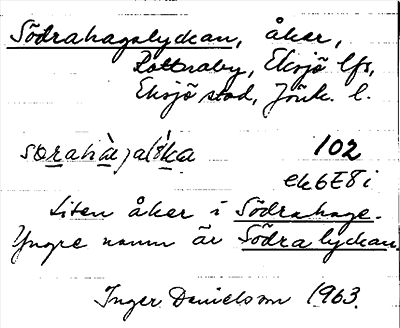 Södrahagslyckan, åker,
Rottnaby, Eksjö lfs,
Eksjö stad, Jönk. l.
102
ek6E8i
Liten åker i Södrahage.
Yngre namn är Södra lyckan.
Inger Danielsson 1963.